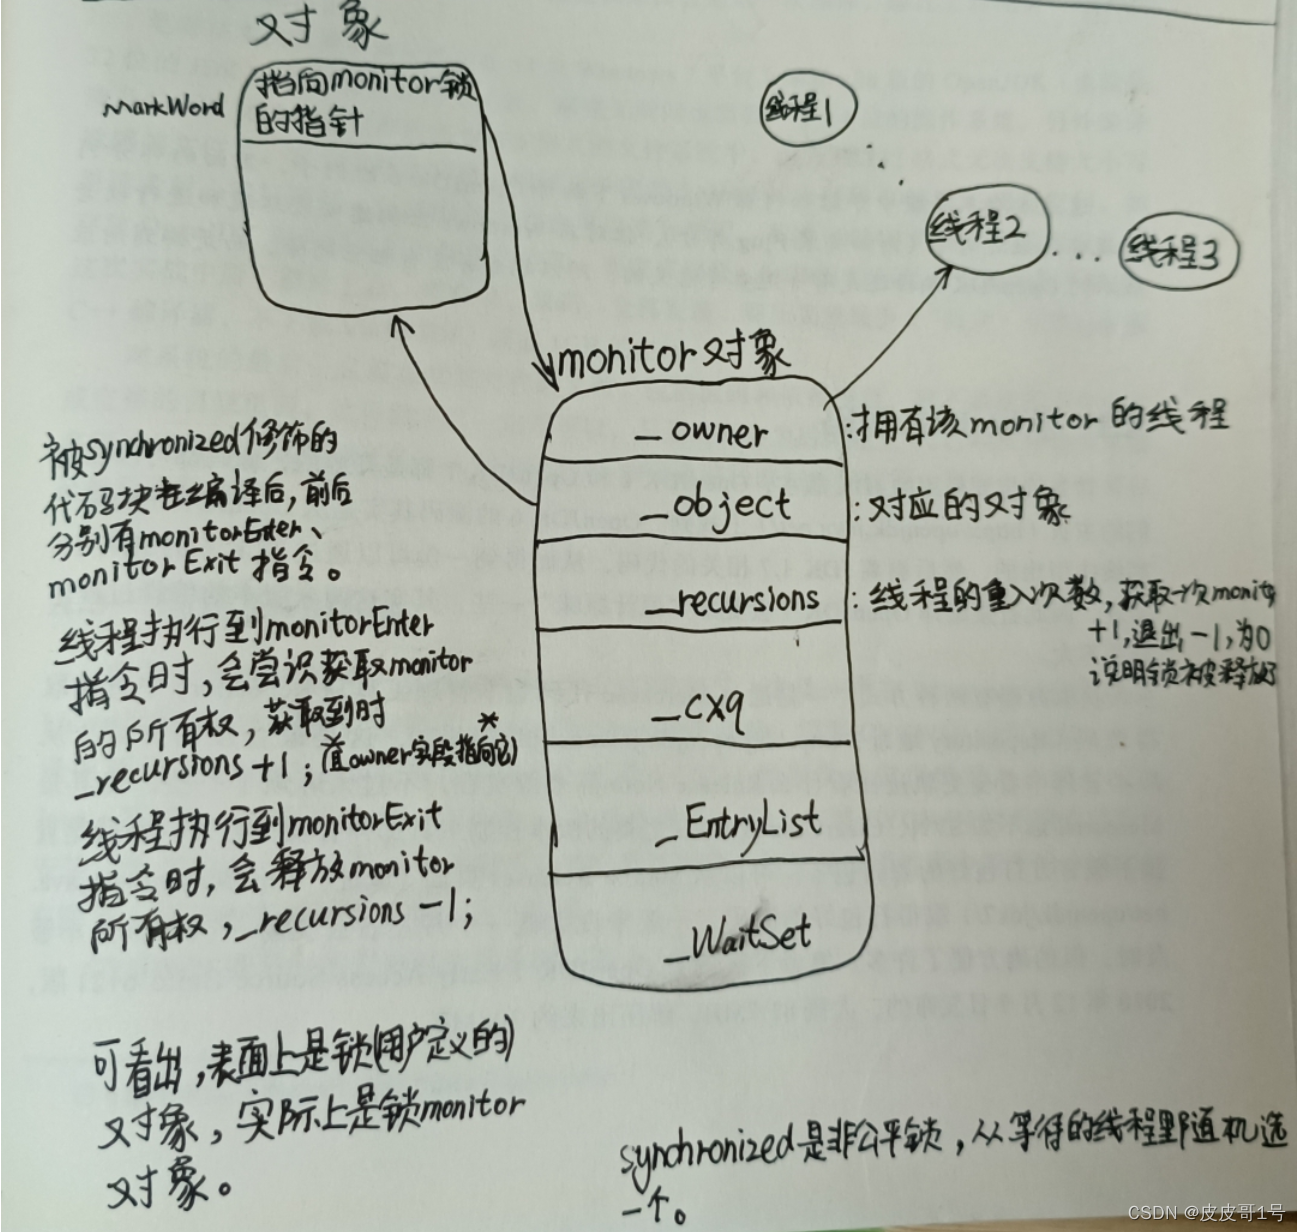 对象
markWord
指向monitor锁
的指针
线程1
线程2
线程3
monitor对象
_owner
:拥有该monitor的线程
_object
:对应的对象
_recursions
:线程的重入次数,获取一次monitor
+1,退出-1,为0
说明锁被释放
_cxq
_EntryList
_WaitSet
被synchronized修饰的
代码块在编译后,前后
分别有monitorEnter、
monitorExit指令。
线程执行到monitorEnter
指令时,会尝识获取monitor
的所有权,获取到时
_recursions+1;(值owner字段指向它)*
线程执行到monitorExit
指令时,会释放monitor
所有权,_recursions-1;
可看出,表面上是锁(用户定义的)
对象,实际上是锁monitor
对象。
synchronized是非公平锁,从等待的线程里随机选
一个。
CSDN @皮皮哥1号